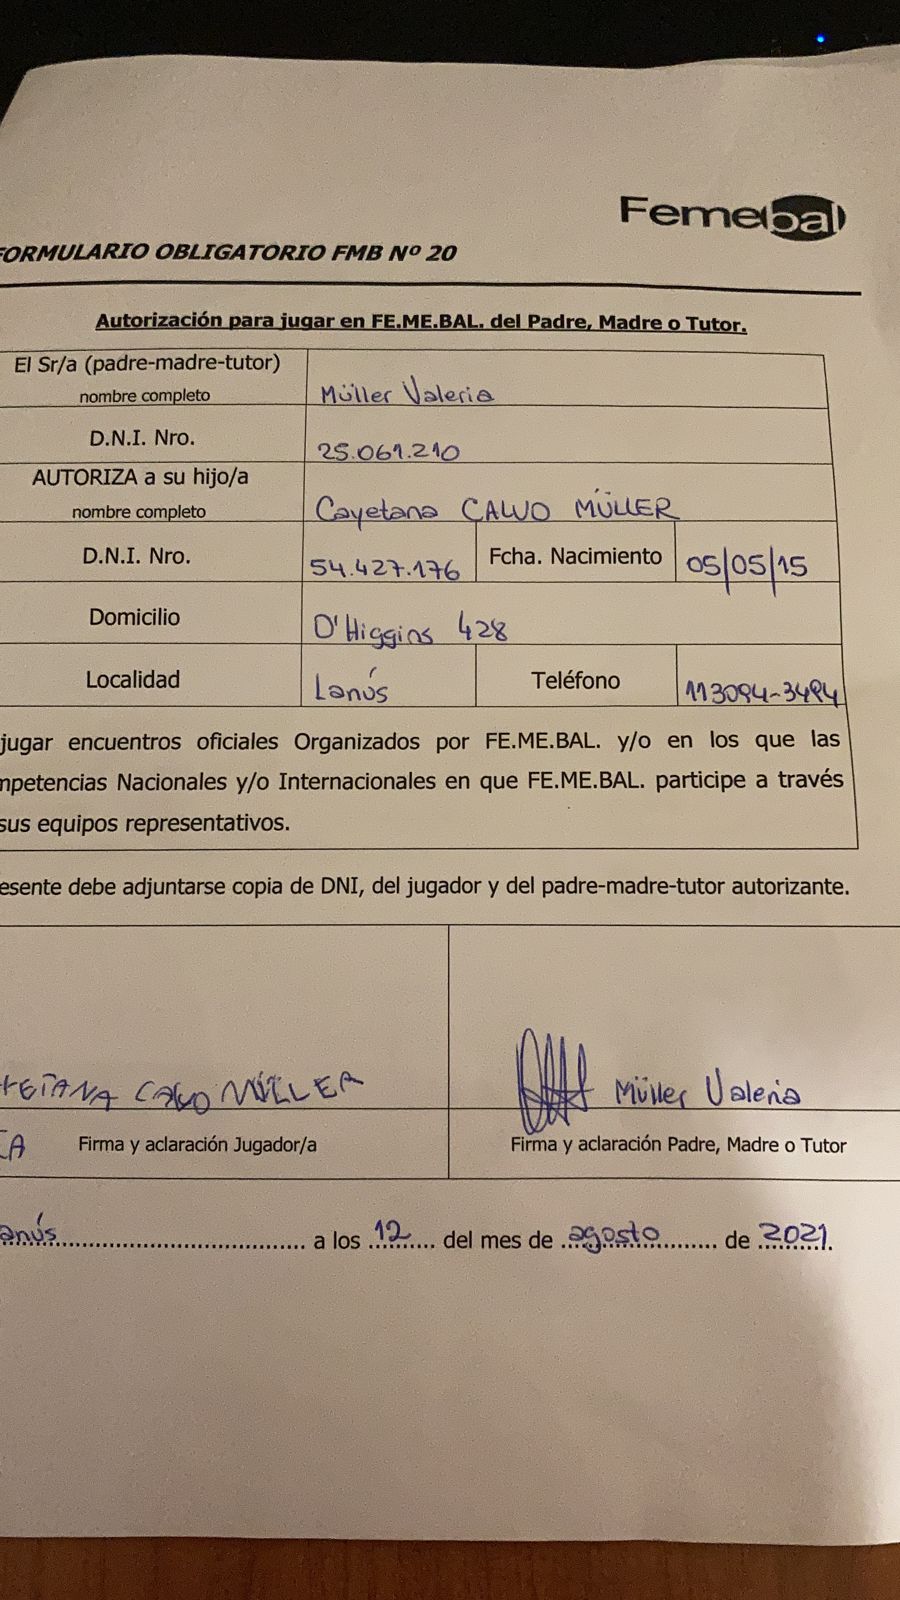 Femebal
FORMULARIO OBLIGATORIO FMB Nº 20
Autorización para jugar en FE.ME.BAL. del Padre, Madre o Tutor.
El Sr/a (padre-madre-tutor)
nombre completo
Müller Valeria
D.N.I. Nro.
25.061.210
AUTORIZA a su hijo/a
nombre completo
Cayetana CALVO MÜLLER
D.N.I. Nro.
54.427.176
Fcha. Nacimiento
05/05/15
Domicilio
O'Higgins 428
Localidad
Lanús
Teléfono
113094-3494
jugar encuentros oficiales Organizados por FE.ME.BAL. y/o en los que las
mpetencias Nacionales y/o Internacionales en que FE.ME.BAL. participe a través
sus equipos representativos.
esente debe adjuntarse copia de DNI, del jugador y del padre-madre-tutor autorizante.
YETANA CALVO MÜLLER
Müller Valeria
Firma y aclaración Jugador/a
Firma y aclaración Padre, Madre o Tutor
anús a los 12 del mes de agosto de 2021.